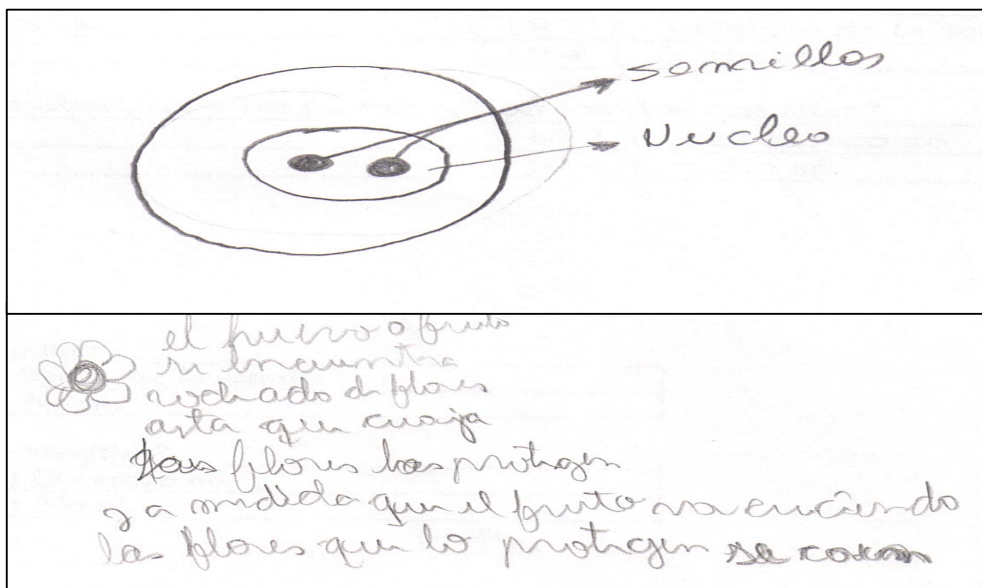 semillas
Nucleo
el huevo o fruto
se encuentra
rodeado d flores
asta que cuaja
flores los protegen
y a medida que el fruto va creciendo
las flores que lo protegen se